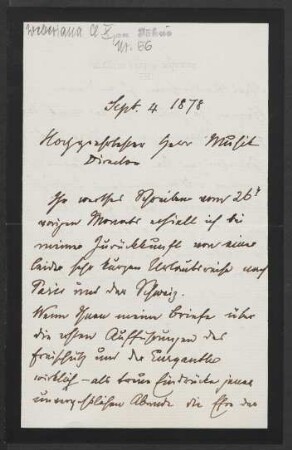 Weberiana Cl. X
Nr. 86
Sept. 4 1878
Hochgeehrtester Herr Musik
Director
Ihr werthes Schreiben vom 26t
vorigen Monats erhielt ich bei
meiner Zurückkunft von einer
leider sehr kurzen Urlaubsreise nach
Paris und der Schweiz.
Wenn Ihnen meine Briefe über
die ersten Aufführungen des
Freischütz und der Euryanthe
wirklich – als treue Eindrücke jener
unvergeßlichen Abende die Ehre der